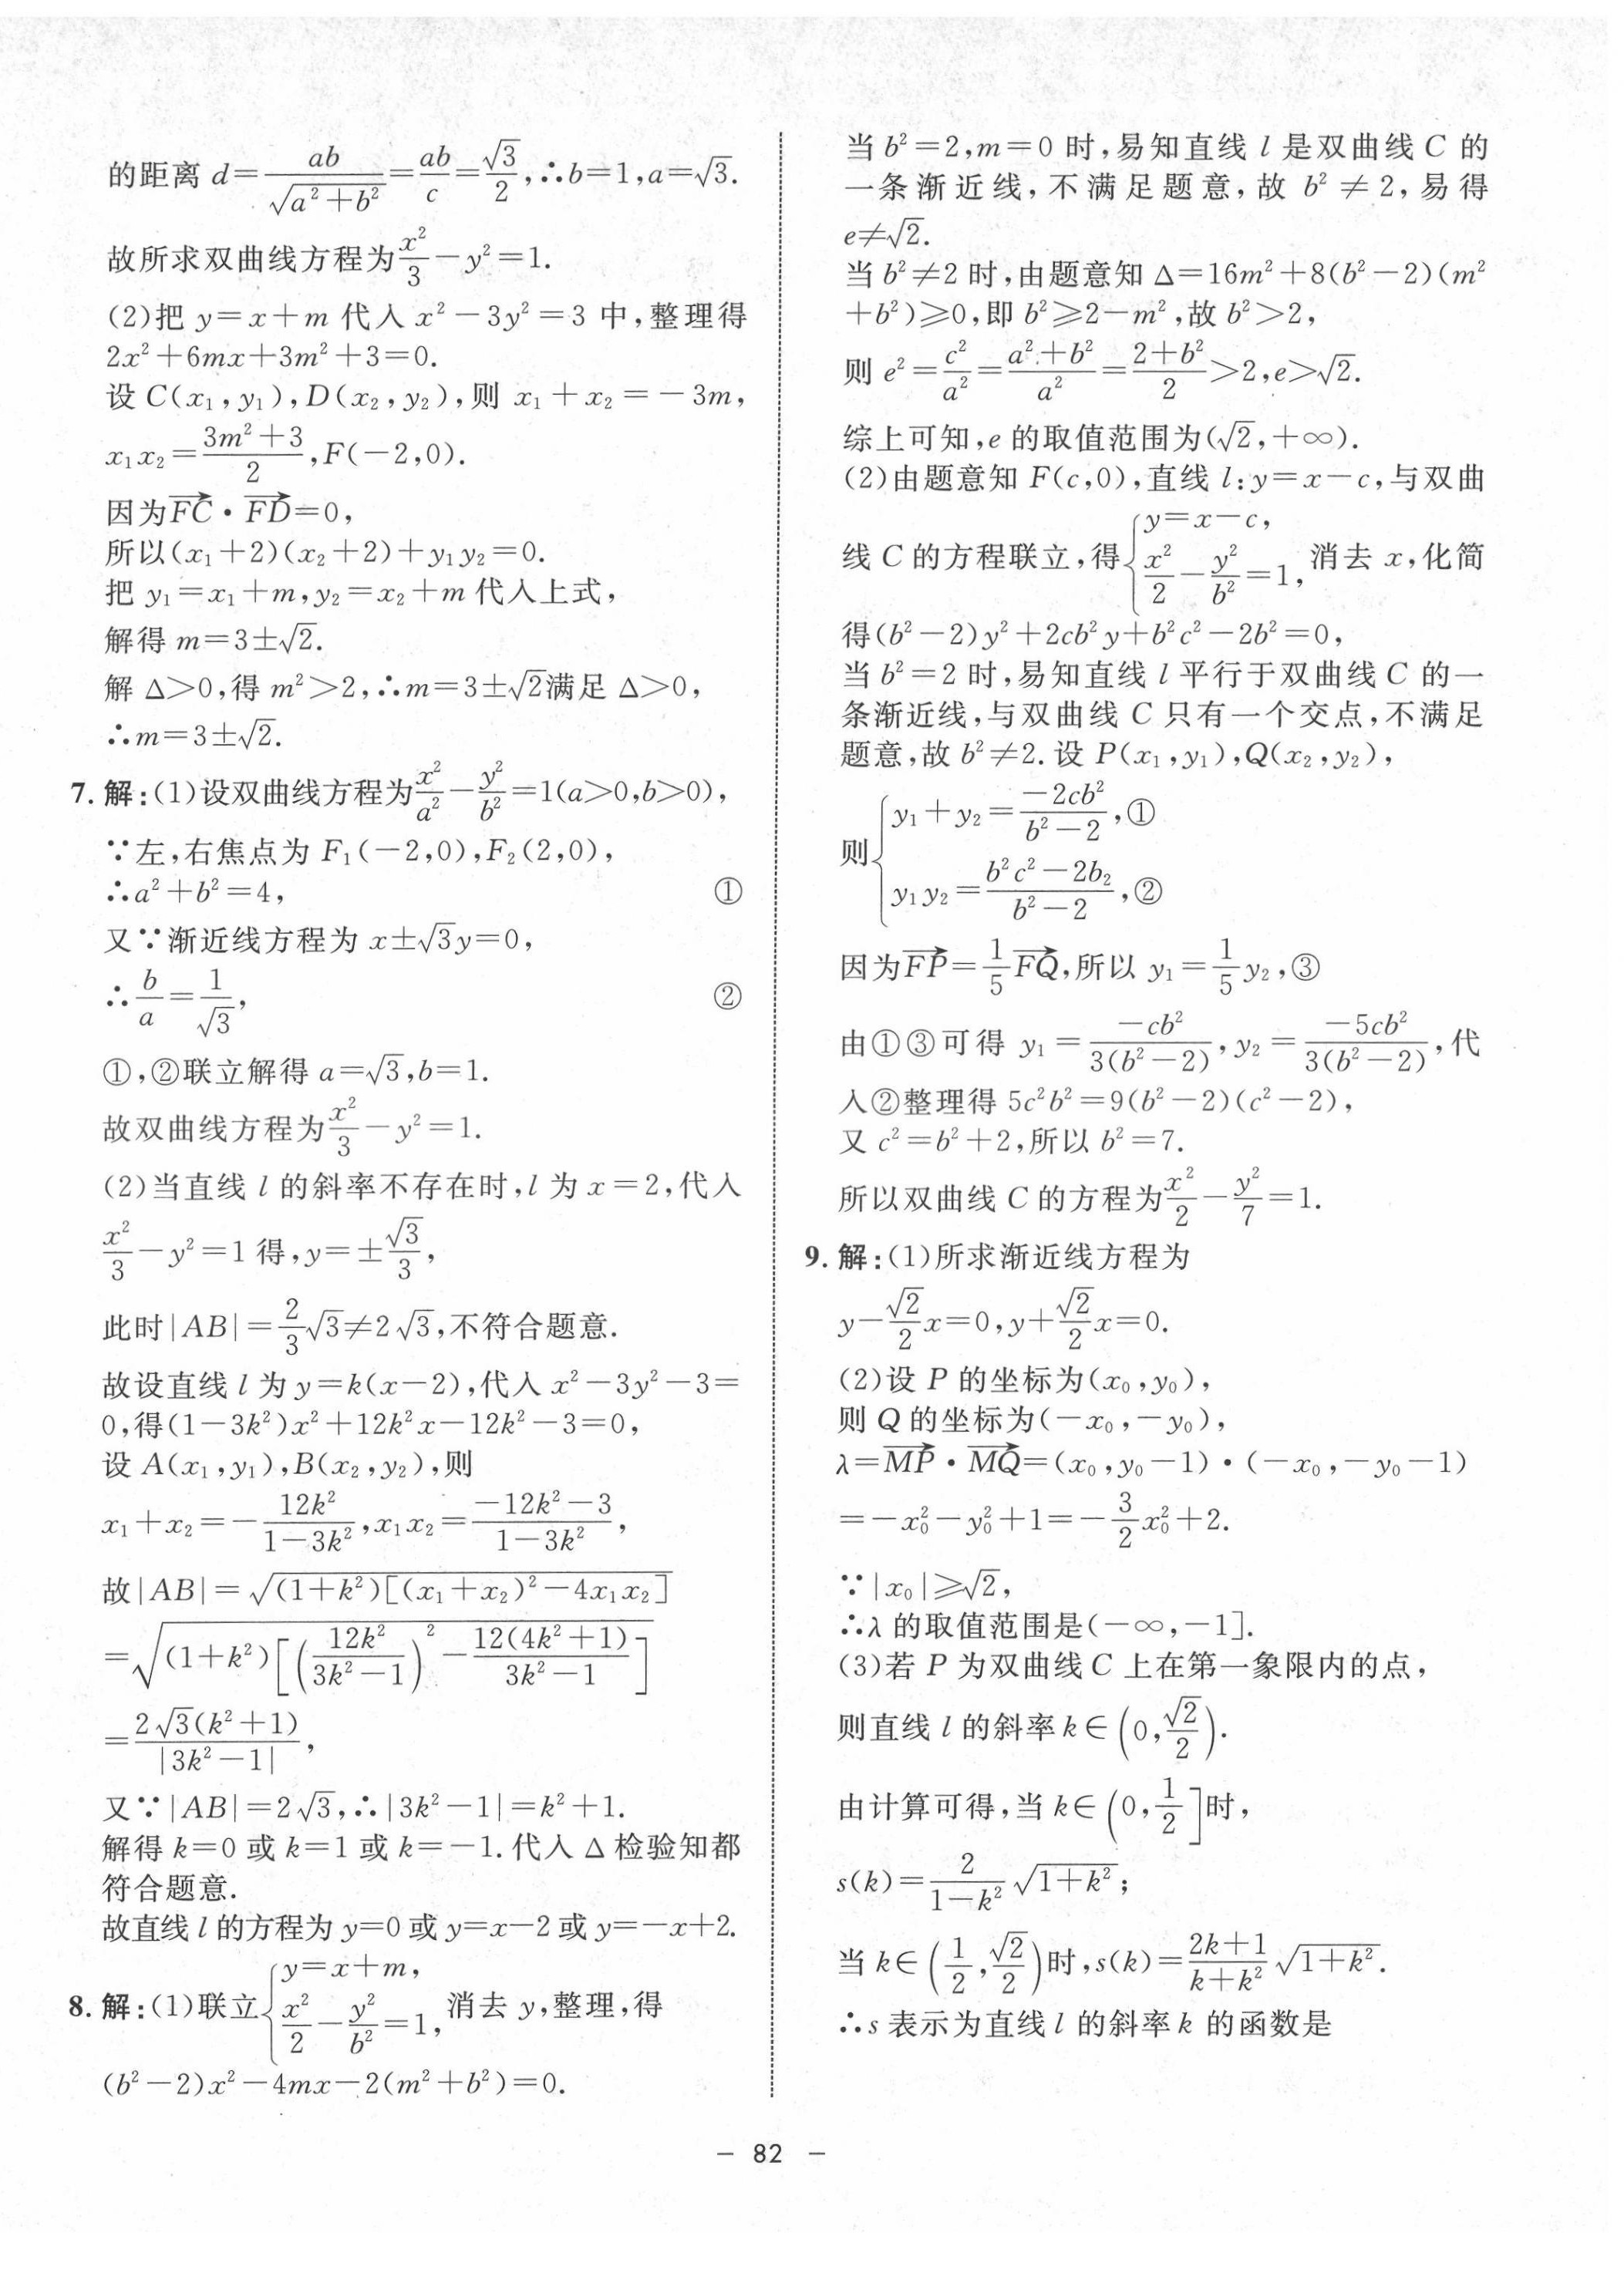 的距离 d=ab/√(a²+b²)=ab/c=√3/2,∴b=1,a=√3.
故所求双曲线方程为x²/3-y²=1.
(2)把 y=x+m 代入 x²-3y²=3 中,整理得
2x²+6mx+3m²+3=0.
设 C(x₁,y₁),D(x₂,y₂),则 x₁+x₂=-3m,
x₁x₂=(3m²+3)/2,F(-2,0).
因为FC→·FD→=0,
所以(x₁+2)(x₂+2)+y₁y₂=0.
把 y₁=x₁+m,y₂=x₂+m 代入上式,
解得 m=3±√2.
解 Δ>0,得 m²>2,∴m=3±√2满足 Δ>0,
∴m=3±√2.
7. 解:(1)设双曲线方程为x²/a²-y²/b²=1(a>0,b>0),
∵左,右焦点为 F₁(-2,0),F₂(2,0),
∴a²+b²=4, ①
又∵渐近线方程为 x±√3y=0,
∴b/a=1/√3, ②
①,②联立解得 a=√3,b=1.
故双曲线方程为x²/3-y²=1.
(2)当直线 l 的斜率不存在时,l 为 x=2,代入
x²/3-y²=1 得,y=±√3/3,
此时|AB|=2/3√3≠2√3,不符合题意.
故设直线 l 为 y=k(x-2),代入 x²-3y²-3=
0,得(1-3k²)x²+12k²x-12k²-3=0,
设 A(x₁,y₁),B(x₂,y₂),则
x₁+x₂=-12k²/(1-3k²),x₁x₂=(-12k²-3)/(1-3k²),
故|AB|=√((1+k²)[(x₁+x₂)²-4x₁x₂])
=√((1+k²)[(12k²/(3k²-1))²-12(4k²+1)/(3k²-1)])
=2√3(k²+1)/|3k²-1|,
又∵|AB|=2√3,∴|3k²-1|=k²+1.
解得 k=0 或 k=1 或 k=-1.代入 Δ 检验知都
符合题意.
故直线 l 的方程为 y=0 或 y=x-2 或 y=-x+2.
8. 解:(1)联立{y=x+m, x²/2-y²/b²=1, 消去 y,整理,得
(b²-2)x²-4mx-2(m²+b²)=0.
当 b²=2,m=0 时,易知直线 l 是双曲线 C 的
一条渐近线,不满足题意,故 b²≠2,易得
e≠√2.
当 b²≠2 时,由题意知 Δ=16m²+8(b²-2)(m²
+b²)≥0,即 b²≥2-m²,故 b²>2,
则 e²=c²/a²=(a²+b²)/a²=(2+b²)/2>2,e>√2.
综上可知,e 的取值范围为(√2,+∞).
(2)由题意知 F(c,0),直线 l:y=x-c,与双曲
线 C 的方程联立,得{y=x-c, x²/2-y²/b²=1, 消去 x,化简
得(b²-2)y²+2cb²y+b²c²-2b²=0,
当 b²=2 时,易知直线 l 平行于双曲线 C 的一
条渐近线,与双曲线 C 只有一个交点,不满足
题意,故 b²≠2.设 P(x₁,y₁),Q(x₂,y₂),
则{y₁+y₂=-2cb²/(b²-2),①
y₁y₂=(b²c²-2b₂)/(b²-2),②
因为FP→=1/5FQ→,所以 y₁=1/5y₂,③
由①③可得 y₁=-cb²/(3(b²-2)),y₂=-5cb²/(3(b²-2)),代
入②整理得 5c²b²=9(b²-2)(c²-2),
又 c²=b²+2,所以 b²=7.
所以双曲线 C 的方程为x²/2-y²/7=1.
9. 解:(1)所求渐近线方程为
y-√2/2x=0,y+√2/2x=0.
(2)设 P 的坐标为(x₀,y₀),
则 Q 的坐标为(-x₀,-y₀),
λ=MP→·MQ→=(x₀,y₀-1)·(-x₀,-y₀-1)
=-x₀²-y₀²+1=-3/2x₀²+2.
∵|x₀|≥√2,
∴λ 的取值范围是(-∞,-1].
(3)若 P 为双曲线 C 上在第一象限内的点,
则直线 l 的斜率 k∈(0,√2/2).
由计算可得,当 k∈(0,1/2]时,
s(k)=2/(1-k²)√(1+k²);
当 k∈(1/2,√2/2)时,s(k)=(2k+1)/(k+k²)√(1+k²).
∴s 表示为直线 l 的斜率 k 的函数是
— 82 —